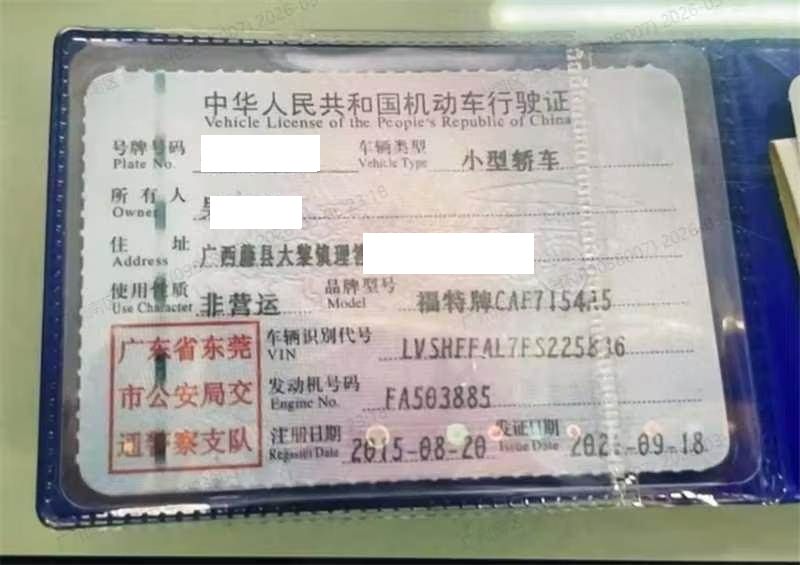 中华人民共和国机动车行驶证
Vehicle License of the People's Republic of China
号牌号码
Plate No.
车辆类型
Vehicle Type
小型轿车
所有人
Owner
住址
Address
广西藤县大黎镇理
使用性质
Use Character
非营运
品牌型号
Model
福特牌CAF7154A5
广东省东莞
市公安局交
通警察支队
车辆识别代号
VIN
发动机号码
Engine No.
FA503885
注册日期
Register Date
2015-08-20
发证日期
Issue Date